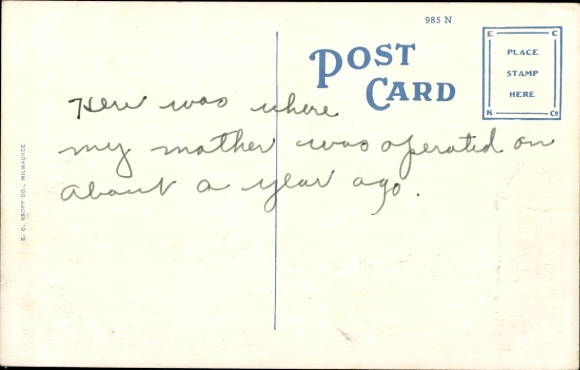 985 N
POST
CARD
E C
PLACE
STAMP
HERE
K Co
Here was where
my mother was operated on
about a year ago.
E. C. KROPP CO., MILWAUKEE